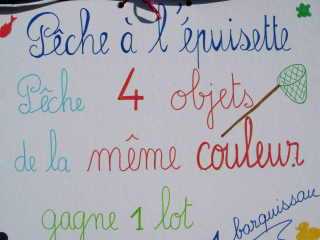 Pêche à l'épuisette
Pêche 4 objets
de la même couleur
gagne 1 lot
1 barquissau